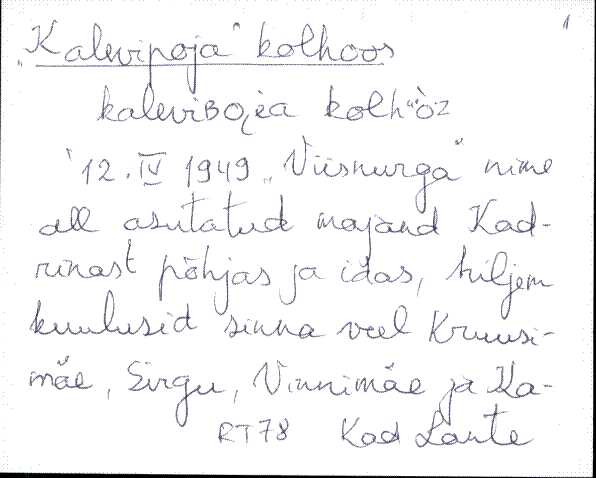 1
„Kalevipoja" kolhoos
kaleviBoi̯ɐa kolh"òz
'12. IV 1949 „Viisnurga" nime
all asutatud majand Kad-
rinast põhjas ja idas, hiljem
kuulusid sinna veel Kruusi-
mäe, Sirgu, Vinnimäe ja Ka-
RT78 Kad Lante